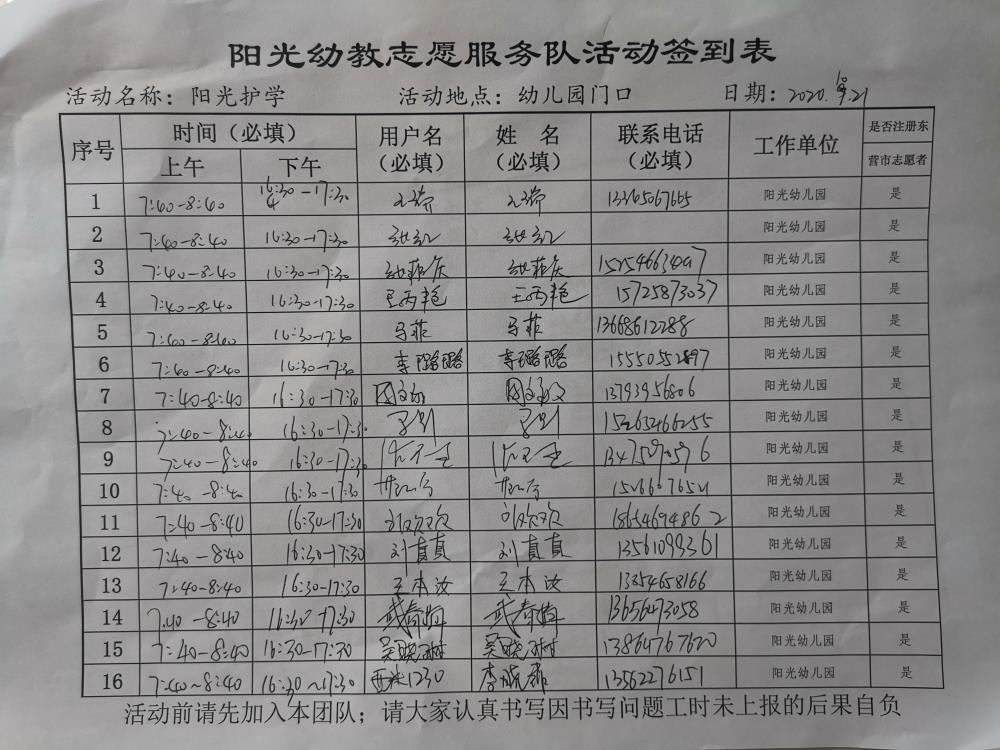 阳光幼教志愿服务队活动签到表
活动名称：阳光护学 活动地点：幼儿园门口 日期：2020. 9.21
序号 时间（必填） 用户名（必填） 姓 名（必填） 联系电话（必填） 工作单位 是否注册东营市志愿者
上午 下午
1 7:40-8:40 16:30-17:30 阳光幼儿园 是
2 7:40-8:40 16:30-17:30 阳光幼儿园 是
3 7:40-8:40 16:30-17:30 阳光幼儿园 是
4 7:40-8:40 16:30-17:30 王丙艳 王丙艳 15725873037 阳光幼儿园 是
5 7:40-8:40 16:30-17:30 马菲 马菲 13668612288 阳光幼儿园 是
6 7:40-8:40 16:30-17:30 李璐璐 李璐璐 15550552897 阳光幼儿园 是
7 7:40-8:40 16:30-17:30 13793956806 阳光幼儿园 是
8 7:40-8:40 16:30-17:30 15265266255 阳光幼儿园 是
9 7:40-8:40 16:30-17:30 阳光幼儿园 是
10 7:40-8:40 16:30-17:30 阳光幼儿园 是
11 7:40-8:40 16:30-17:30 刘欢欢 刘欢欢 18654694862 阳光幼儿园 是
12 7:40-8:40 16:30-17:30 刘真真 刘真真 13561093361 阳光幼儿园 是
13 7:40-8:40 16:30-17:30 王本汝 王本汝 13854658166 阳光幼儿园 是
14 7:40-8:40 16:30-17:30 13656473058 阳光幼儿园 是
15 7:40-8:40 16:30-17:30 吴晓琳 吴晓琳 13864767620 阳光幼儿园 是
16 7:40~8:40 16:30~17:30 13562276151 阳光幼儿园 是
活动前请先加入本团队；请大家认真书写因书写问题工时未上报的后果自负